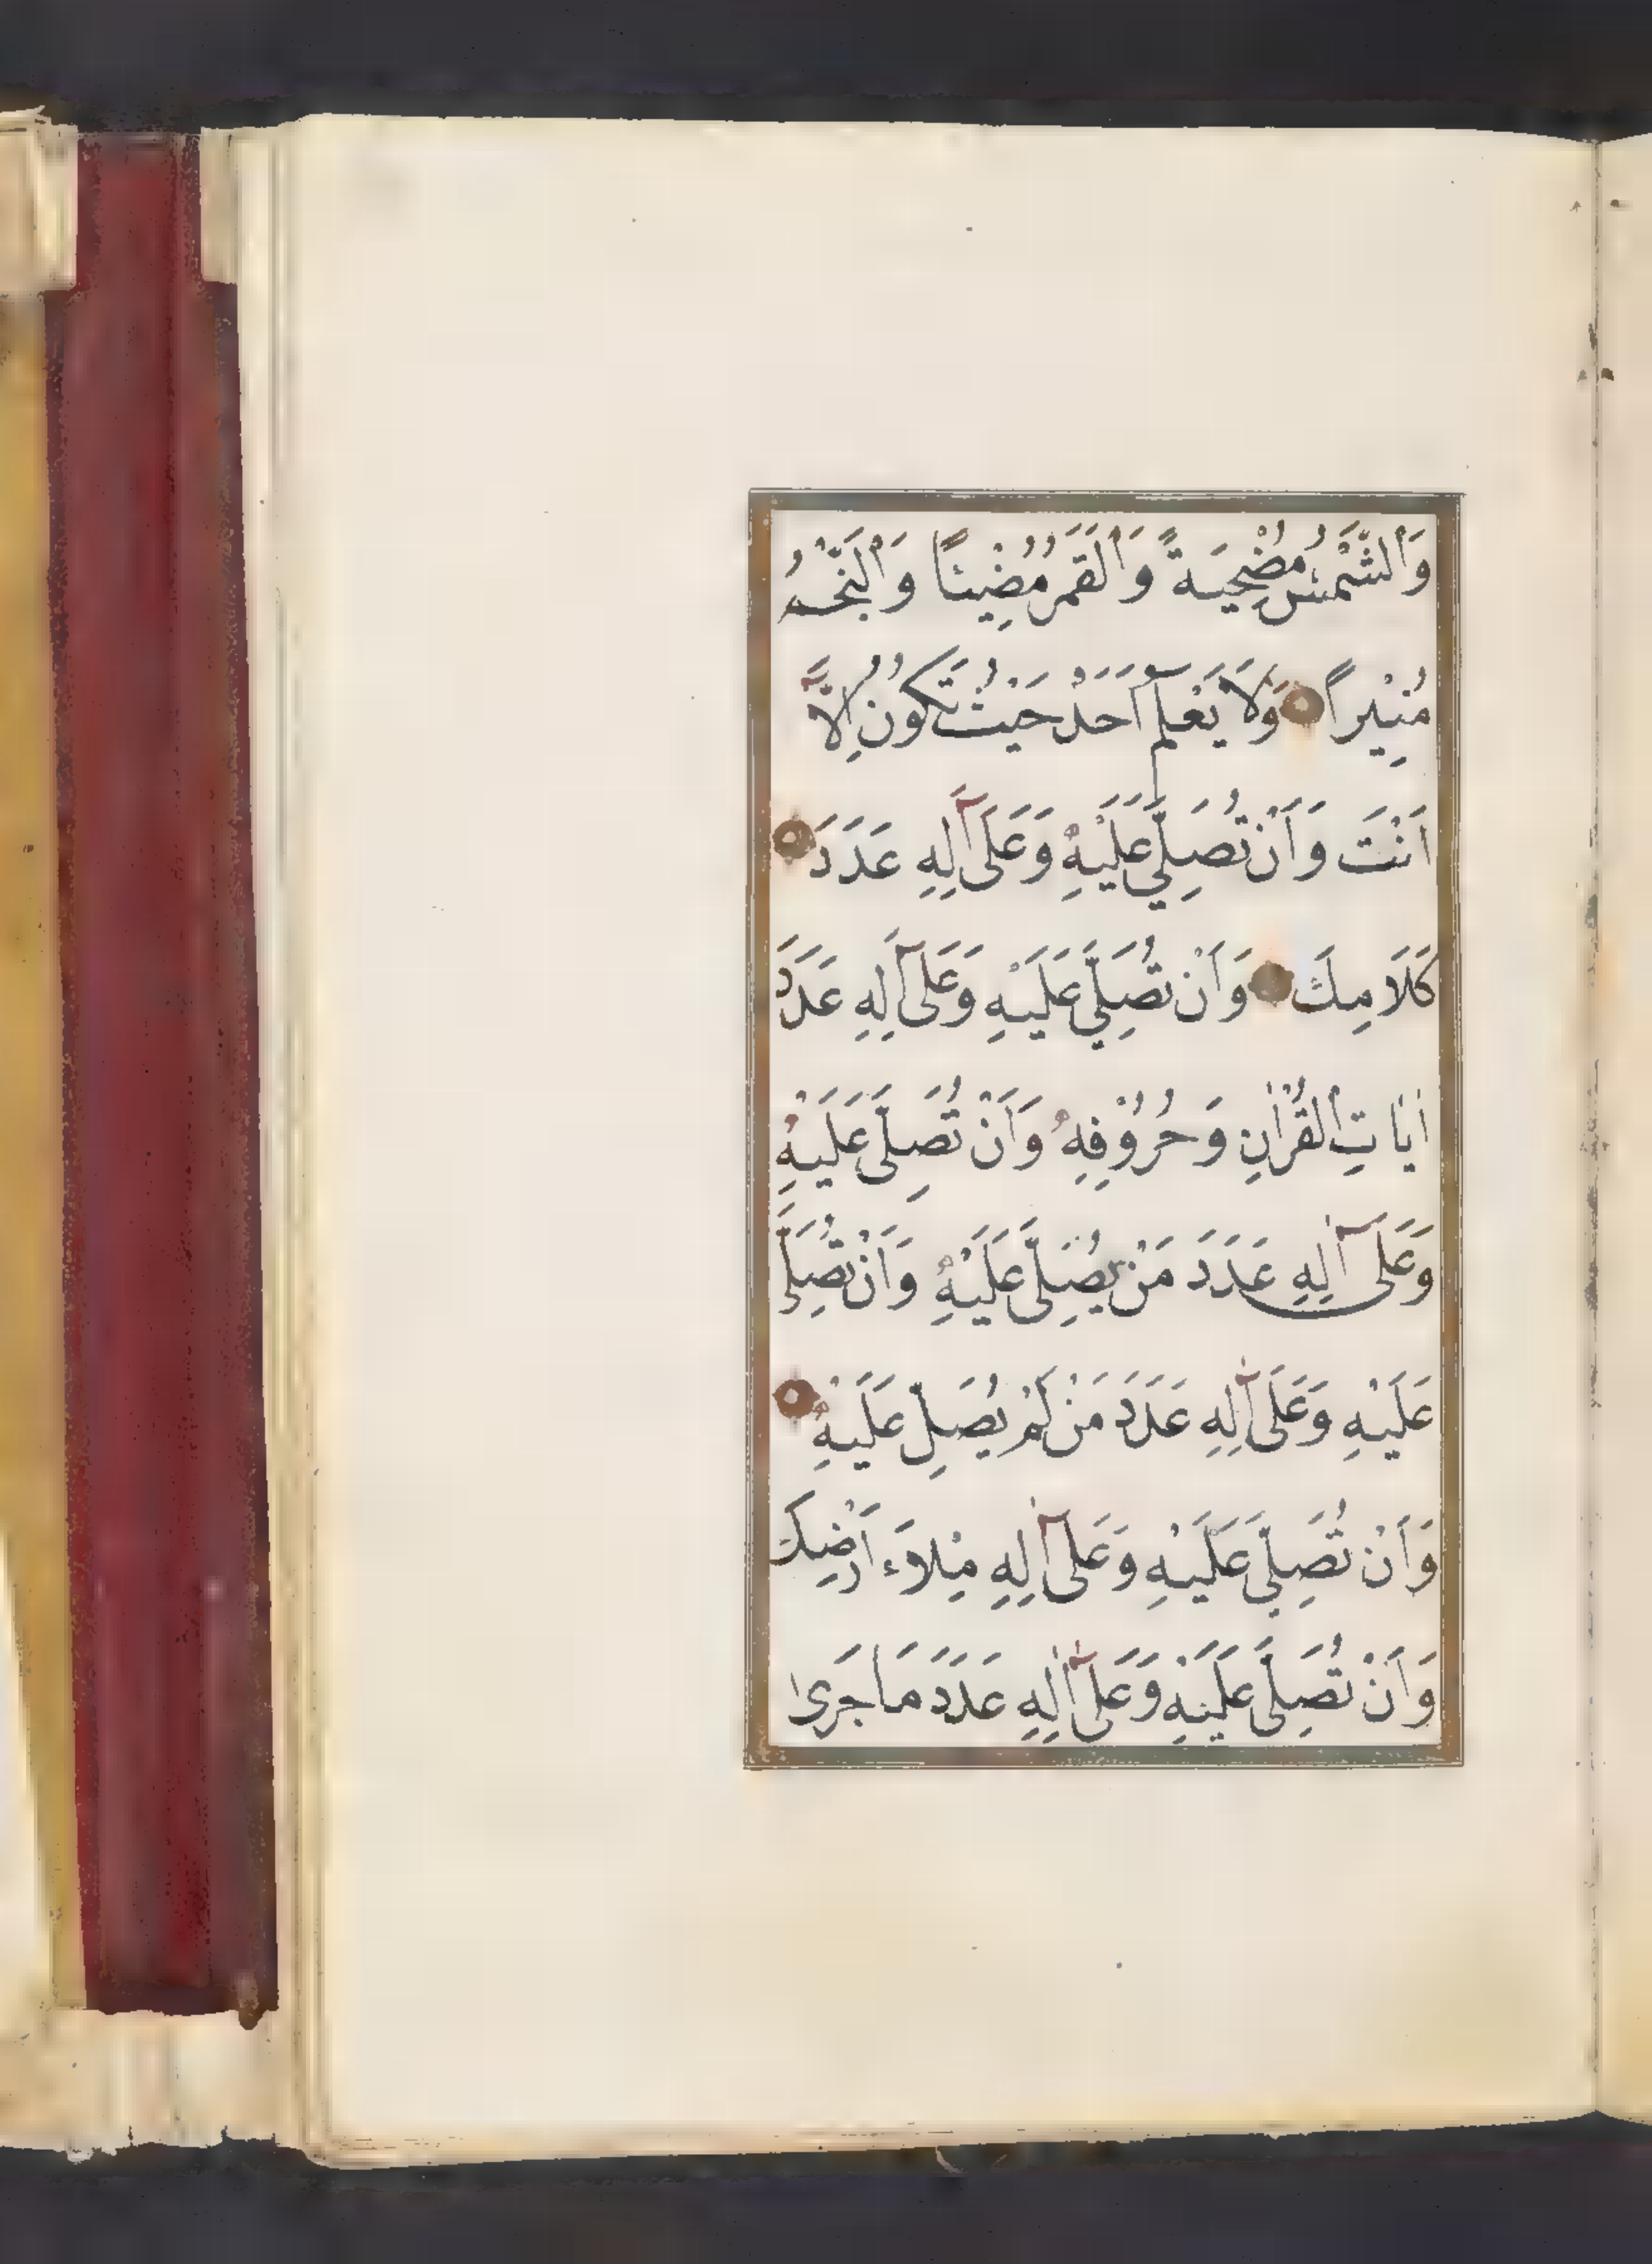 وَالشَّمْسُ مُضْحِيَةً وَالْقَمَرُ مُضِيئًا وَالنَّجْمُ
مُنِيْراً وَلَا يَعْلَمُ اَحَدٌ حَيْثُ تَكُونُ اِلَّا
اَنْتَ وَاَنْ تُصَلِّيَ عَلَيْهِ وَعَلَى آلِهِ عَدَدَ
كَلَامِكَ وَاَنْ تُصَلِّيَ عَلَيْهِ وَعَلَى آلِهِ عَدَدَ
اٰيَاتِ الْقُرْاٰنِ وَحُرُوْفِهِ وَاَنْ تُصَلِّىَ عَلَيْهِ
وَعَلَى آلِهِ عَدَدَ مَنْ يُصَلِّى عَلَيْهِ وَاَنْ تُصَلِّىَ
عَلَيْهِ وَعَلَى آلِهِ عَدَدَ مَنْ لَمْ يُصَلِّ عَلَيْهِ
وَاَنْ تُصَلِّيَ عَلَيْهِ وَعَلَى آلِهِ مِلْاَءَ اَرْضِكَ
وَاَنْ تُصَلِّىَ عَلَيْهِ وَعَلَى آلِهِ عَدَدَ مَا جَرٰى